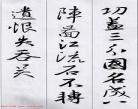 功盖三分國名成
陣圖江流石不轉
遺恨失吞吴